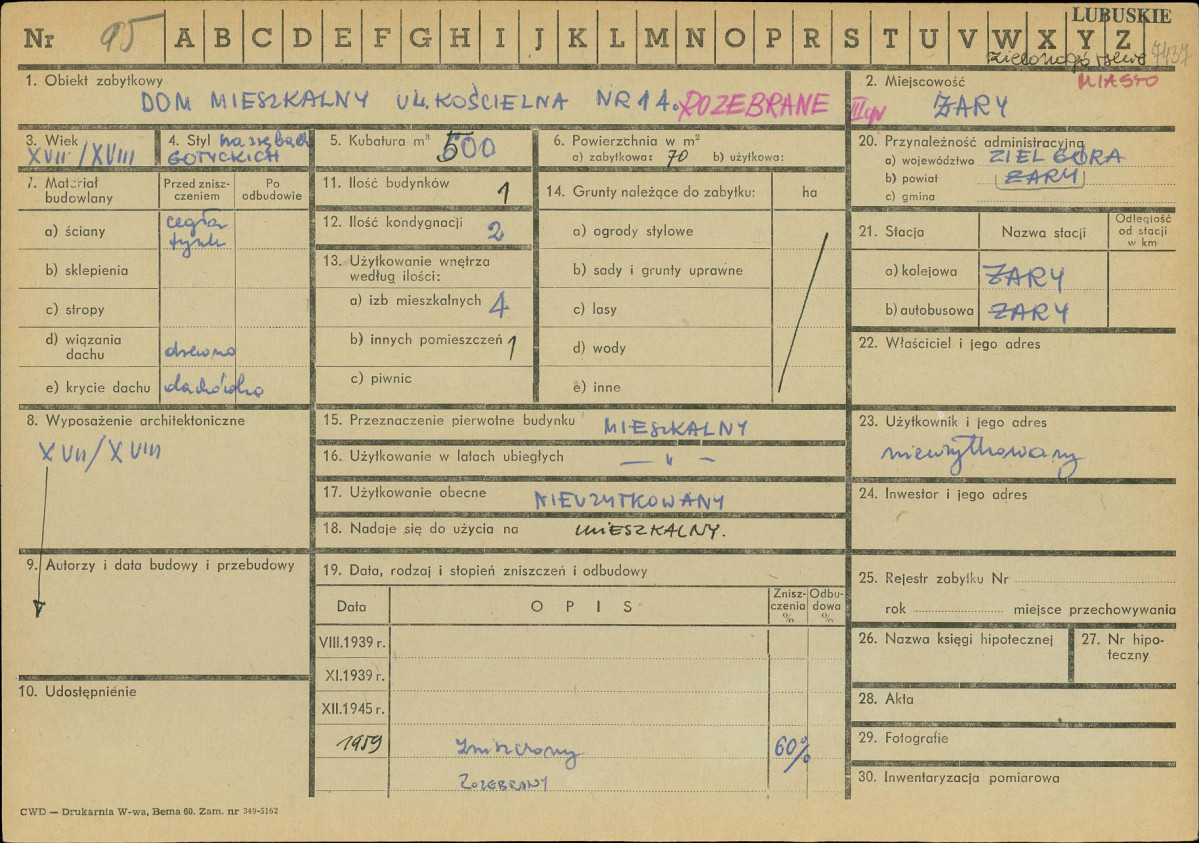 LUBUSKIE
Nr 95 A B C D E F G H I J K L M N O P R S T U V W X Y Z
7437
1. Obiekt zabytkowy
DOM MIESZKALNY UL. KOŚCIELNA NR 14. ROZEBRANE
2. Miejscowość MIASTO
ŻARY
3. Wiek
XVII/XVIII
4. Styl
GOTYCKICH
5. Kubatura m³ 500
6. Powierzchnia w m²
a) zabytkowa: 70 b) użytkowa:
20. Przynależność administracyjna
a) województwo ZIEL GÓRA
b) powiat ŻARY
c) gmina
7. Materiał budowlany
Przed zniszczeniem
Po odbudowie
a) ściany cegła
tynk
b) sklepienia
c) stropy
d) wiązania dachu drewno
e) krycie dachu dachówka
11. Ilość budynków 1
12. Ilość kondygnacji 2
13. Użytkowanie wnętrza
według ilości:
a) izb mieszkalnych 4
b) innych pomieszczeń 1
c) piwnic
14. Grunty należące do zabytku: ha
a) ogrody stylowe
b) sady i grunty uprawne
c) lasy
d) wody
e) inne
21. Stacja Nazwa stacji Odległość od stacji w km
a) kolejowa ŻARY
b) autobusowa ŻARY
22. Właściciel i jego adres
8. Wyposażenie architektoniczne
XVII/XVIII
15. Przeznaczenie pierwotne budynku MIESZKALNY
16. Użytkowanie w latach ubiegłych — „ —
17. Użytkowanie obecne NIEUŻYTKOWANY
18. Nadaje się do użycia na MIESZKALNY.
23. Użytkownik i jego adres
nieużytkowany
24. Inwestor i jego adres
9. Autorzy i data budowy i przebudowy
10. Udostępnienie
19. Data, rodzaj i stopień zniszczeń i odbudowy
Data OPIS Zniszczenia % Odbudowa %
VIII.1939 r.
XI.1939 r.
XII.1945 r.
1959 zniszczony 60%
ROZEBRANY
25. Rejestr zabytku Nr
rok miejsce przechowywania
26. Nazwa księgi hipotecznej
27. Nr hipoteczny
28. Akta
29. Fotografie
30. Inwentaryzacja pomiarowa
CWD — Drukarnia W-wa, Bema 60. Zam. nr 349-5162